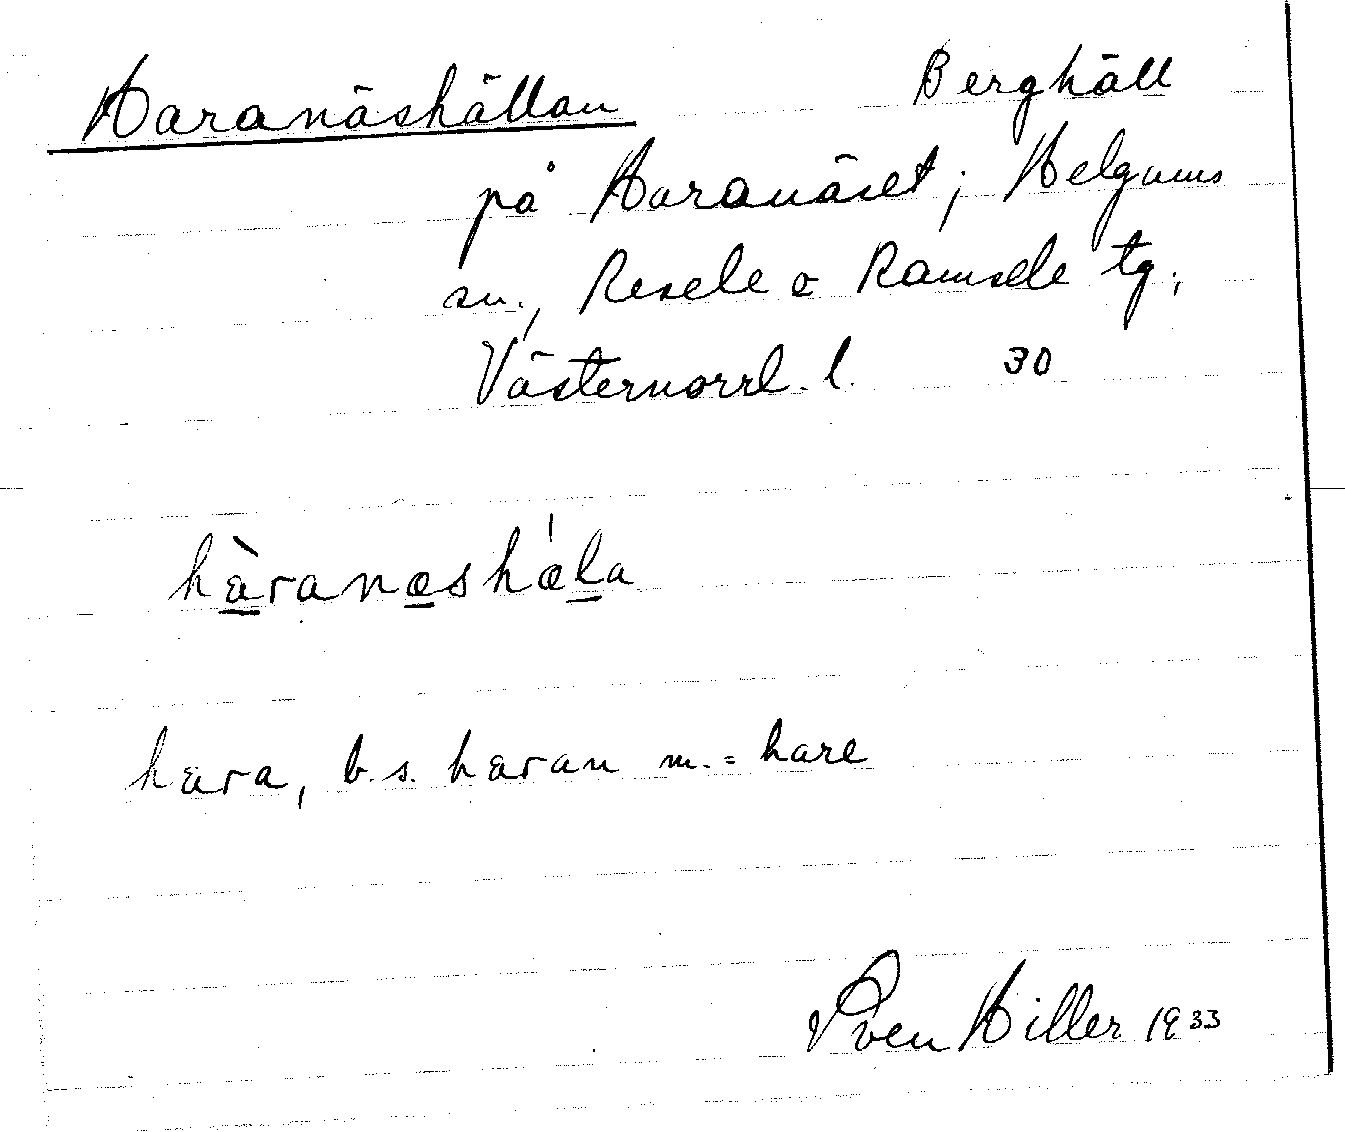 Haranäshällan Berghäll
på Haranäset; Helgums
sn., Resele o Ramsele tg.,
Västernorrl. l. 30
hàranæshæ̀la
hara, b.s. haran m. = hare
Sven Hiller 1933